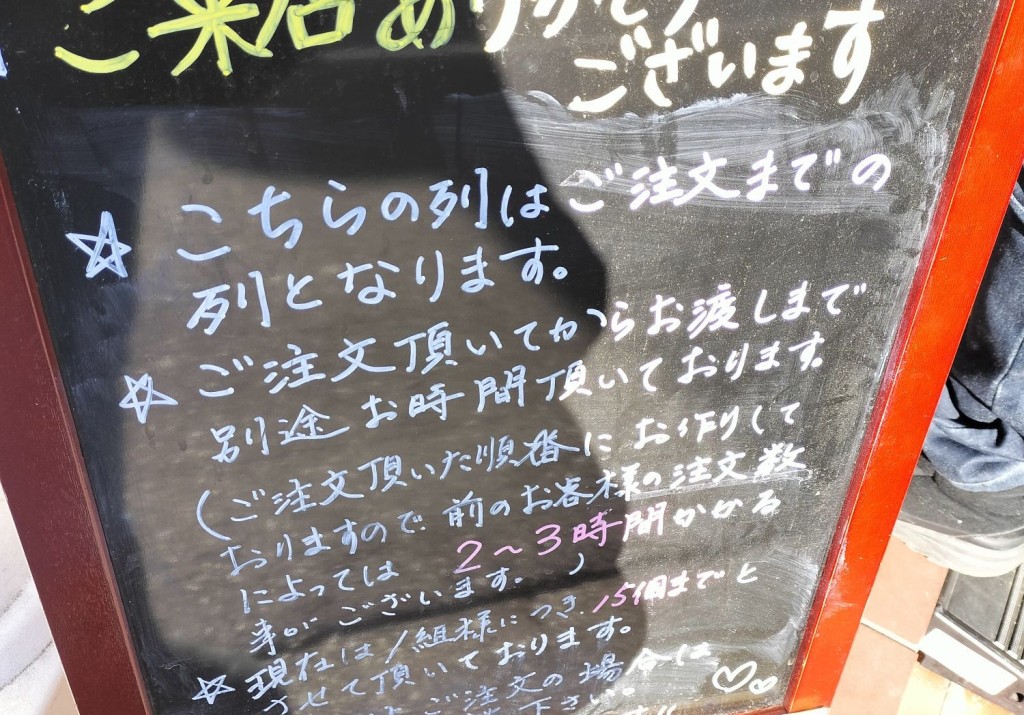 ご来店ありがとう
ございます
☆ こちらの列はご注文までの
列となります。
☆ ご注文頂いてからお渡しまで
別途お時間頂いております。
(ご注文頂いた順番にお作りして
おりますので、前のお客様の注文数
によっては 2〜3時間かかる
事がございます。)
☆ 現在は1組様につき、15個までと
させて頂いております。
ご注文の場合は
下さい。